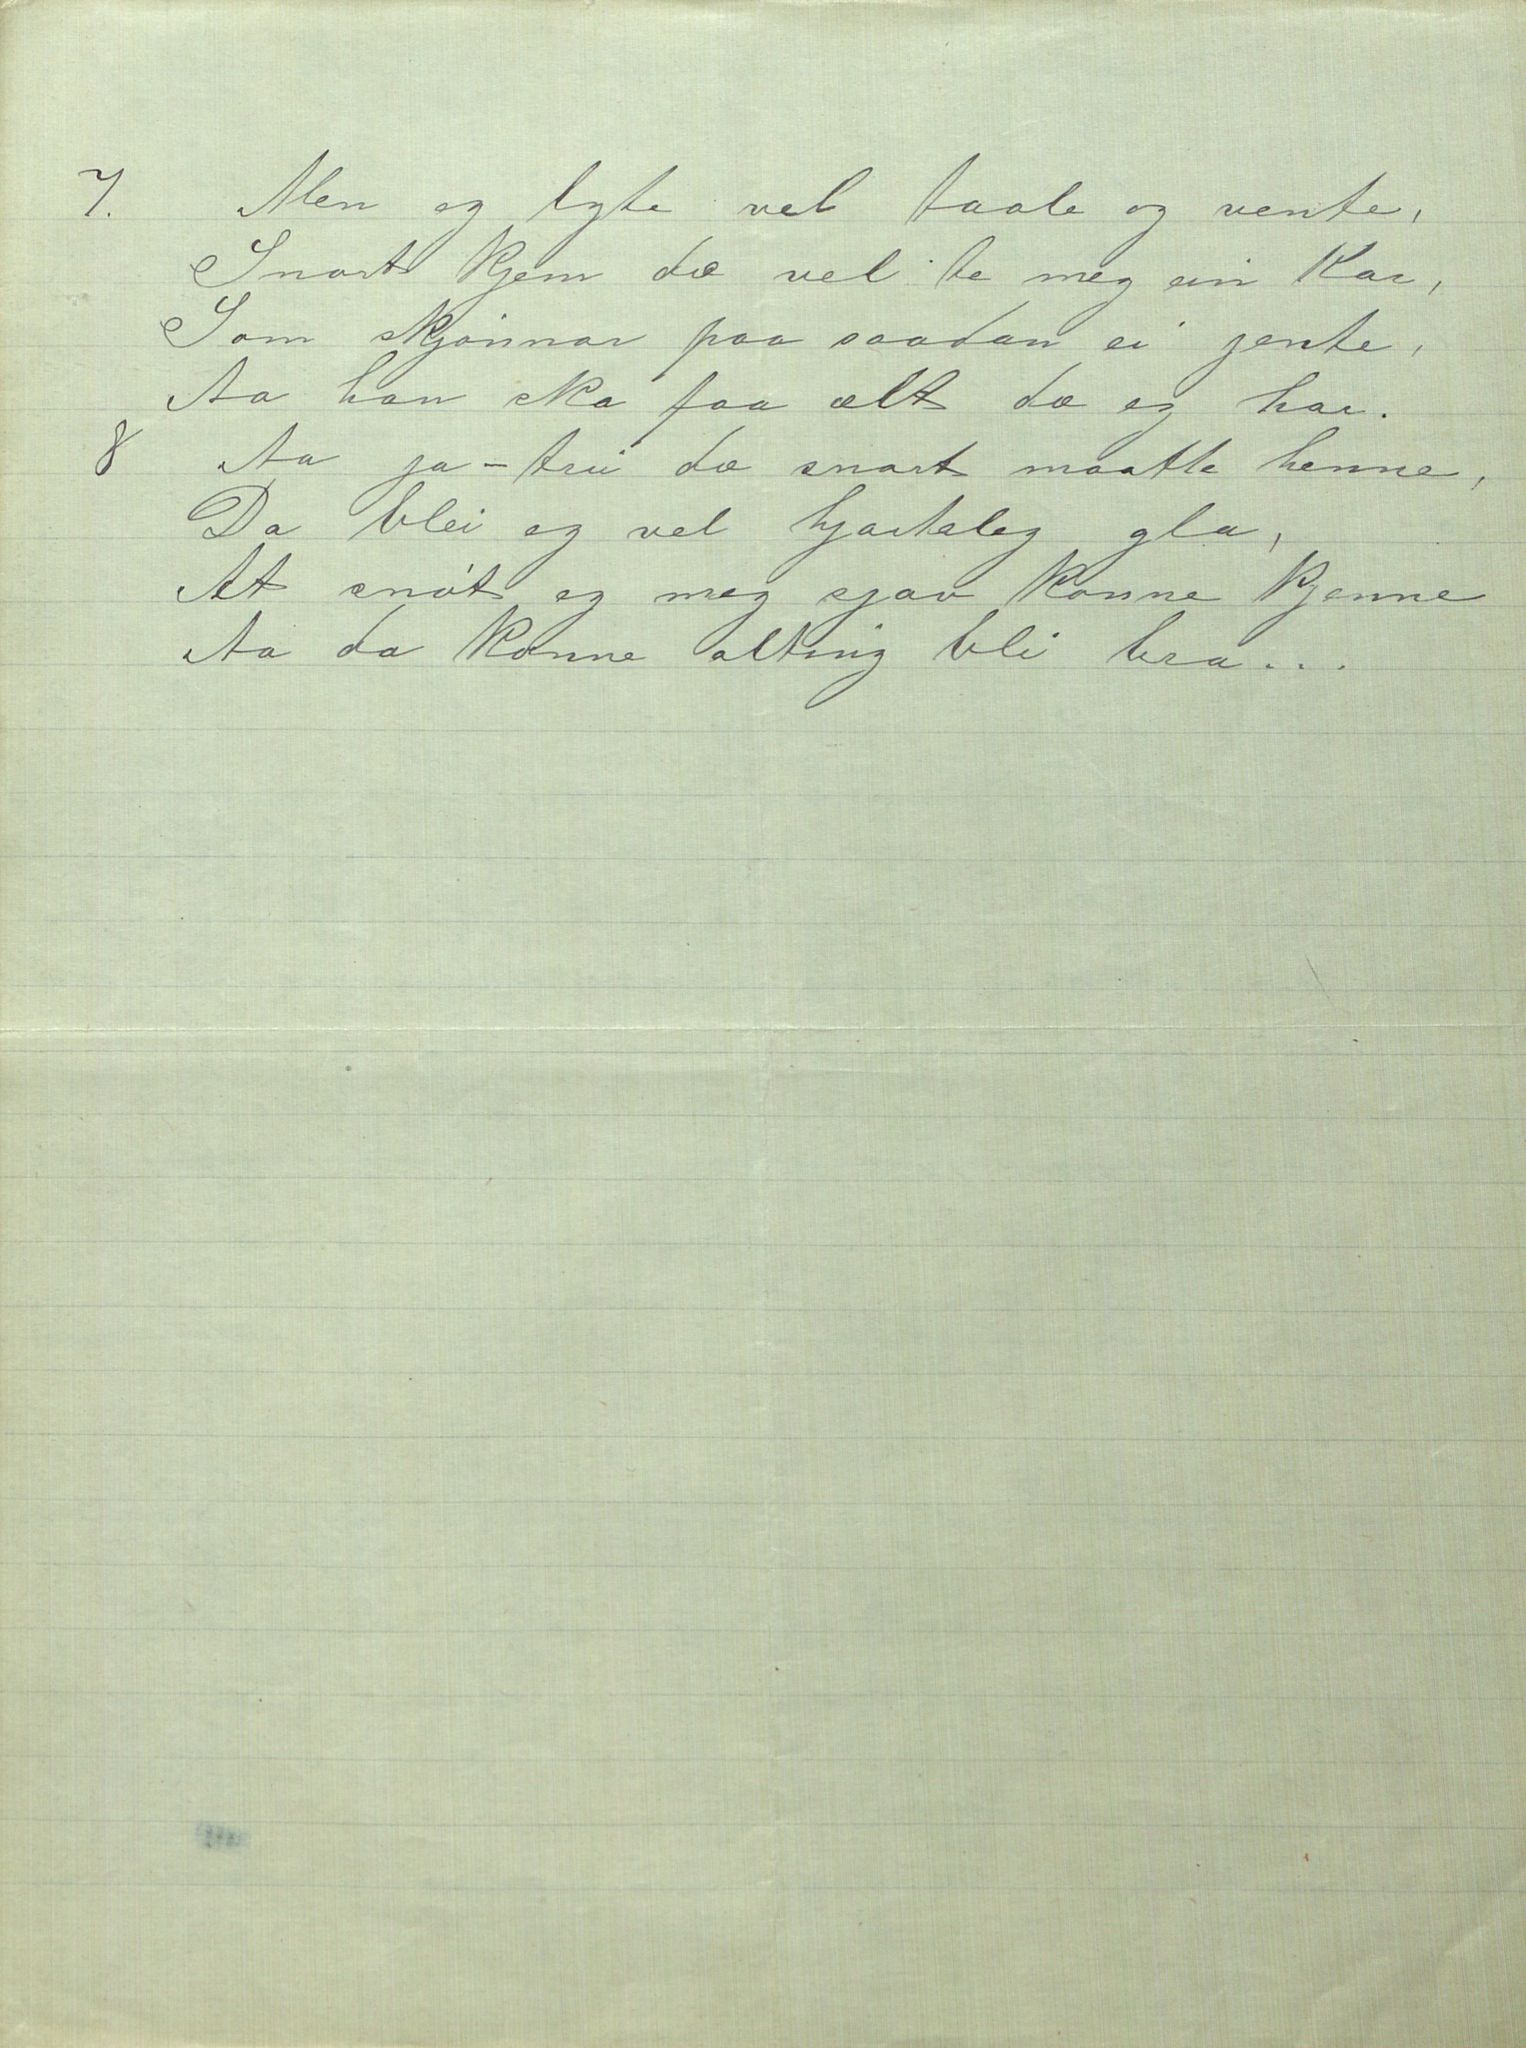 7. Men eg lyte vel taale og vente,
Snart kjem dæ vel te meg ein kar,
Som skjönnar paa saadan ei jente,
Aa han ska faa ælt dæ eg har.
8 Aa ja - trü dæ snart maatte henne,
Da blei eg vel hjarteleg gla,
At snöt eg meg sjøv konne kjenne
Aa da konne alting bli bra...